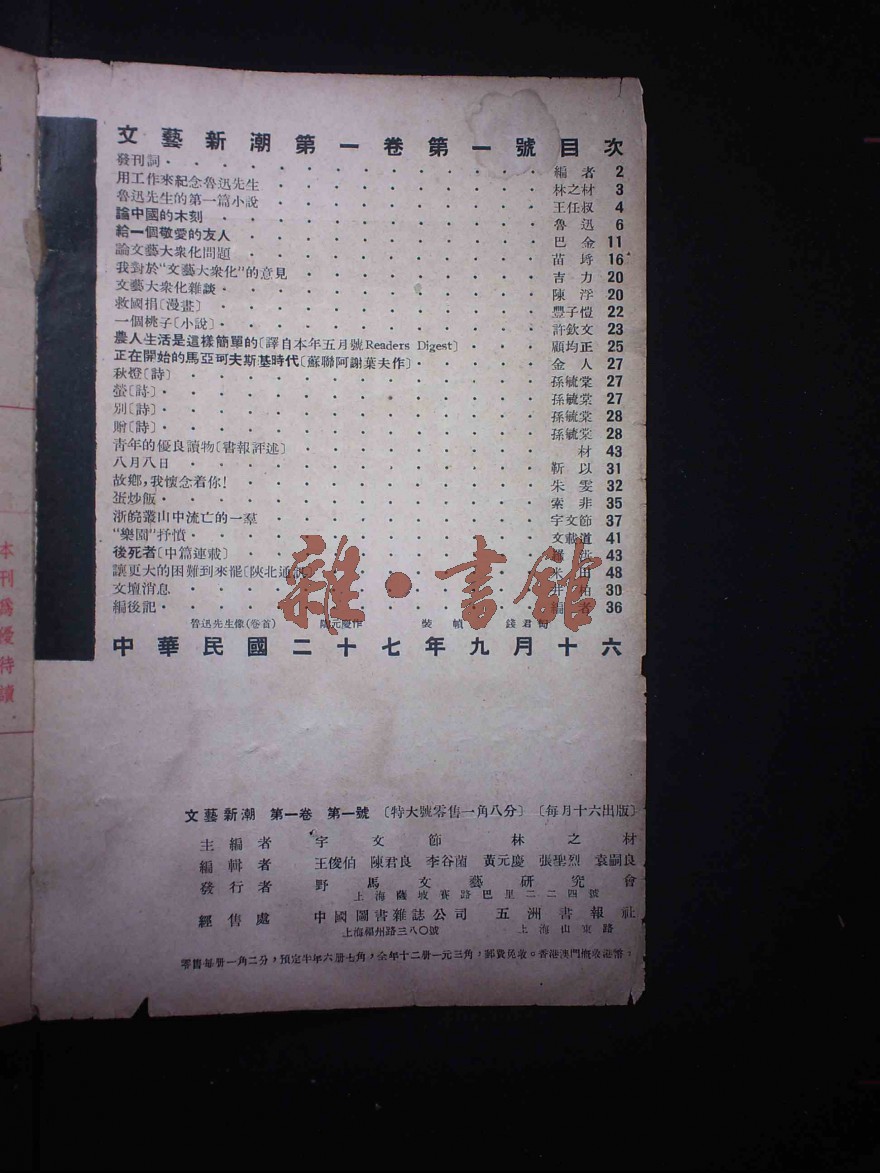 文藝新潮第一卷第一號目次
發刊詞 編者 2
用工作來紀念魯迅先生 林之材 3
魯迅先生的第一篇小說 王任叔 4
論中國的木刻 魯迅 6
給一個敬愛的友人 巴金 11
論文藝大衆化問題 苗埒 16
我對於“文藝大衆化”的意見 吉力 20
文藝大衆化雜談 陳浮 20
救國捐〔漫畫〕 豐子愷 22
一個桃子〔小說〕 許欽文 23
農人生活是這樣簡單的〔譯自本年五月號Readers Digest〕 顧均正 25
正在開始的馬亞珂夫斯基時代〔蘇聯阿謝葉夫作〕 金人 27
秋燈〔詩〕 孫毓棠 27
螢〔詩〕 孫毓棠 27
別〔詩〕 孫毓棠 28
贈〔詩〕 孫毓棠 28
青年的優良讀物〔書報評述〕 材 43
八月八日 靳以 31
故鄉,我懷念着你! 朱雯 32
蛋炒飯 索非 35
浙皖叢山中流亡的一羣 宇文節 37
“樂園”抒憤 文載道 41
後死者〔中篇連載〕 43
讓更大的困難到來罷〔陝北通訊〕 48
文壇消息 30
編後記 編者 36
魯迅先生像(卷首) 陶元慶作 裝幀 錢君匋
中華民國二十七年九月十六
雜·書館
文藝新潮 第一卷 第一號 〔特大號零售一角八分〕〔每月十六出版〕
主編者 宇文節 林之材
編輯者 王俊伯 陳君良 李谷蘭 黃元慶 張聖烈 袁嗣良
發行者 野馬文藝研究會
上海薩坡賽路巴里二二四號
經售處 中國圖書雜誌公司 五洲書報社
上海福州路三八〇號 上海山東路
零售每册一角二分,預定半年六册七角,全年十二册一元三角,郵費免收。香港澳門概收港幣。
本刊爲優待讀